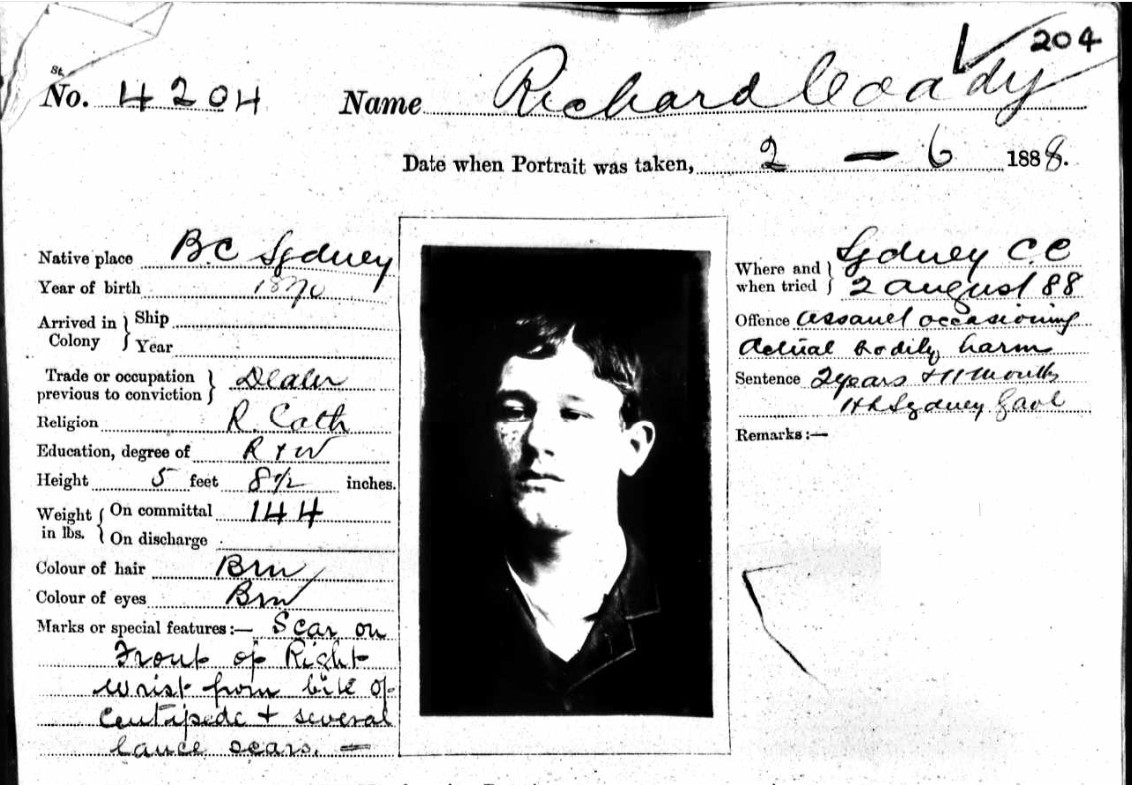 204
St.
No. 4204 Name Richard Coady
Date when Portrait was taken, 2 — 6 1888.
Native place B.C Sydney
Year of birth 1870
Arrived in Colony } Ship
Year
Trade or occupation previous to conviction } Dealer
Religion R. Cath
Education, degree of R & W
Height 5 feet 8 1/2 inches.
Weight in lbs. { On committal 144
On discharge
Colour of hair Brn
Colour of eyes Brn
Marks or special features:— Scar on
Front of Right
wrist from bite of
Centipede + several
lance scars. —
Where and when tried } Sydney C.C
2 August 88
Offence Assault occasioning
Actual bodily harm
Sentence 2 years + 11 Months
HL Sydney Gaol
Remarks:—